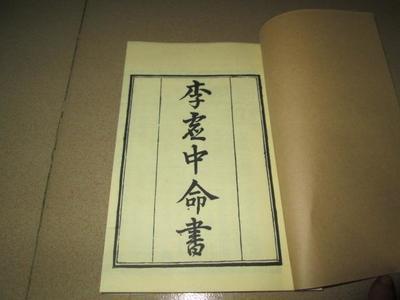 李虚中命書